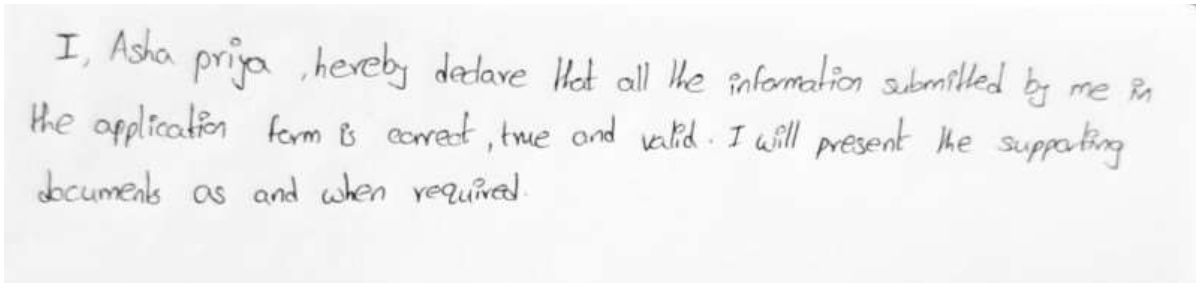 I, Asha priya, hereby declare that all the information submitted by me in
the application form is correct, true and valid. I will present the supporting
documents as and when required.